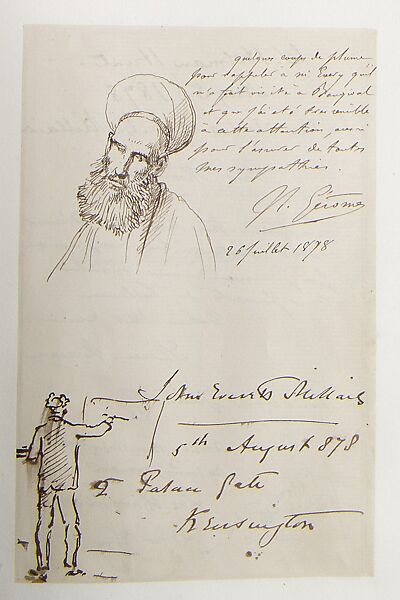 quelques coups de plume
pour rappeler à mr Every qu'il
m'a fait visite à Bougival
et que j'ai été très sensible
à cette attention, aussi
pour l'assurer de toutes
mes sympathies.
Gérome
26 Juillet 1878
John Everett Millais
5th August 1878
2 Palace Gate
Kensington